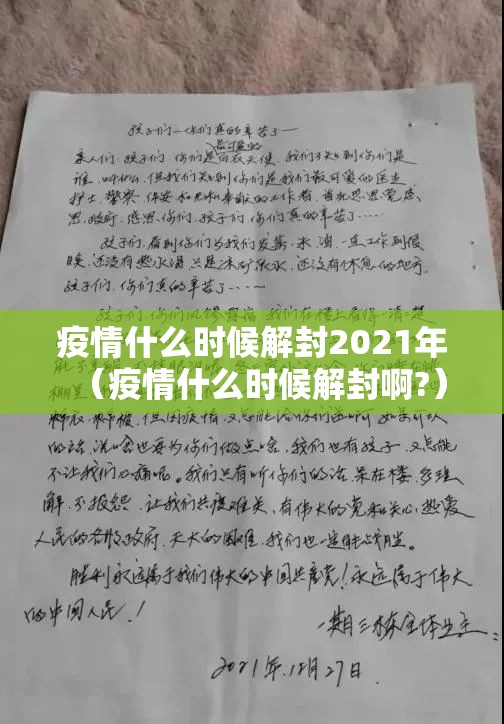 孩子们一你们真的辛苦了一
最可爱的
亲人们.孩子们.你们是白衣天使.我们不知到你们是
谁.叫什么.但我们知到你们是我们最可爱的医生
护士.警察.保安和无私奉献的工作者.首先感恩党.感
恩.政府.感恩.你们.孩子们.你们真的辛苦了……
孩子们.看到你们为我们发菜.米.油.一直工作到很
晚.还没有热水喝只是冰矿泉水.还没有休息的地方.
孩子们.你们真的辛苦了……
我们在楼上看得一清二楚
疫情什么时候解封2021年
（疫情什么时候解封啊?）
棉被.但因疫情.又怎能给你们送呢可如果可以
的话.洗啥也要为你们做点啥.我们也有孩子.又怎能
不让我们心痛呢。我们只有听你们的话.呆在楼.多理
解.不报怨.让我们共度难关,有伟大的党和关心,热爱
人民的各级政府.天大的困难.我们也一定能战胜。
胜利永远属于我们伟大的中国共产党!永远属于伟大
的中国人民.!
一期三栋全体业主.
2021年.12月27日.